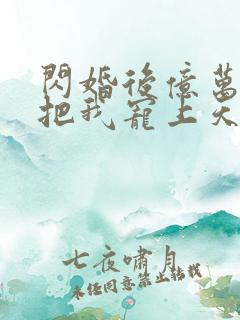 閃婚後億萬
把我寵上天
七夜嘯月
未經同意禁止轉載